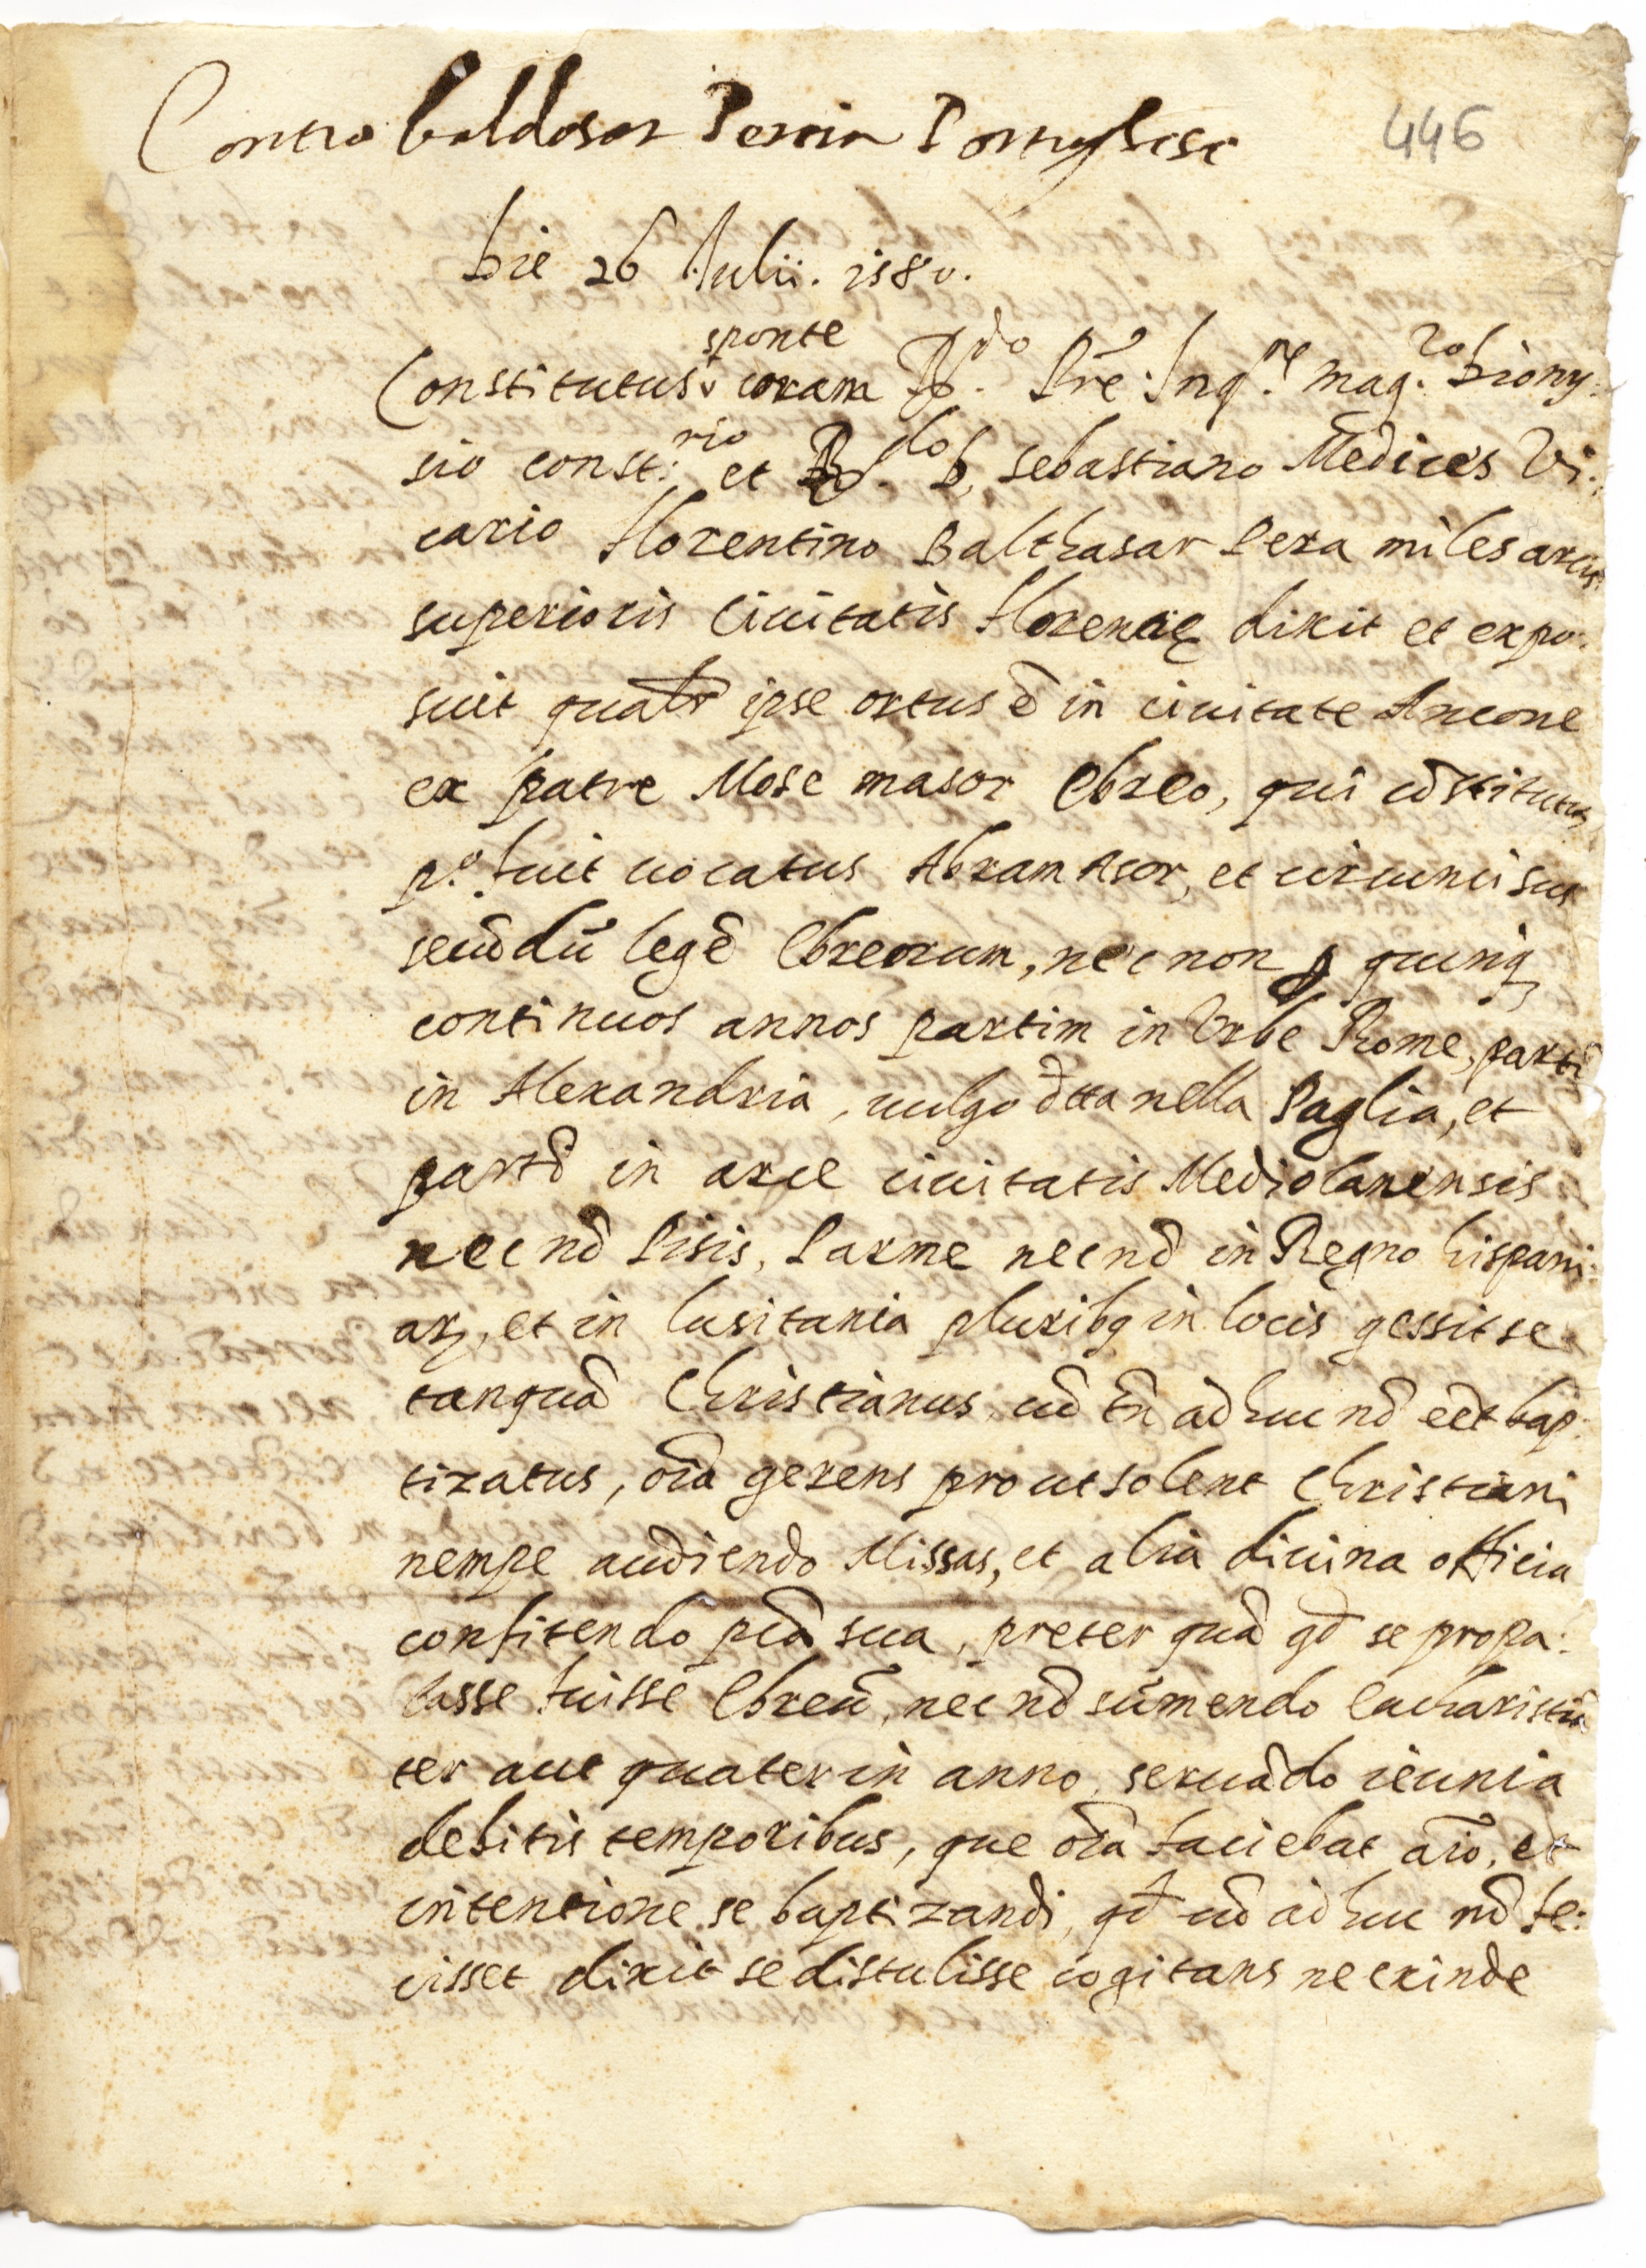 Contra baldasar Pereira Portughese
446
Die 26 Julii. 1580.
sponte
Constitutus coram R.do Prē. Inq.re mag.ro Diony:
sio const.rio et R.do D. Sebastiano Medices Vi:
cario florentino Balthasar Pera miles arcis
superioris Ciuitatis florentię dixit et expo:
suit qualr ipse ortus ē in ciuitate Ancone
ex patre Mose masor Ebreo, qui cōstitutus
p.o fuit uocatus Abram Asor, et circuncisus
secūdū legē Ebreorum, nec non p quinq
continuos annos partim in Vrbe Rome, partī
in Alexandria, uulgo dtta nella Paglia, et
partī in arce ciuitatis Mediolanensis
necnō Pisis, Parme necnō in Regno hispani:
arz, et in lusitania pluribq in locis gessit se
tanquā Christianus, cū tn̄ adhuc nō eēt bap:
tizatus, oīa gerens prout solent Christiani
nempe audiendo Missas, et alia diuina officia
confitendo pcā sua, preter quā qd se propa:
lasse fuisse Ebreū, necnō sumendo Eucharistiā
ter aut quater in anno, seruādo ieiunia
debitis temporibus, que oīa faciebat aīo, et
intentione se baptizandi, qd cū adhuc nō fe:
cisset dixit se distulisse cogitans ne exinde